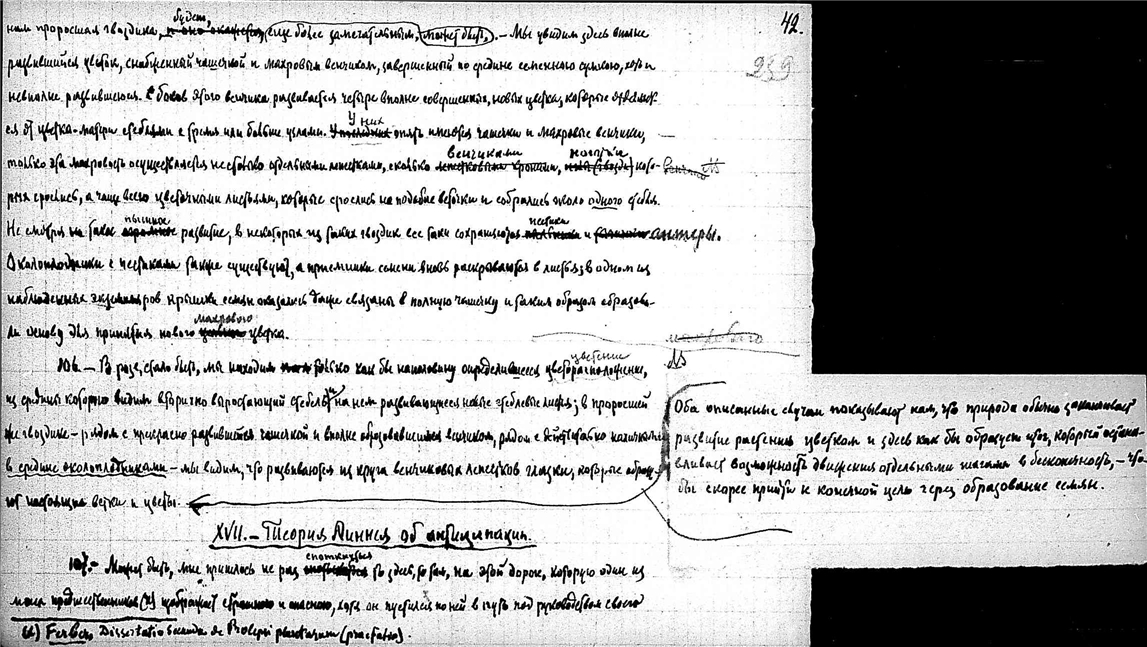 42.
239
будет,
ная проросшая гвоздика, еще более замечательным, может быть. – Мы увидим здесь вполне
развившийся цветок, снабженный чашечкой и махровым венчиком, завершенный по средине семенного сумкою, хотя и
невполне развившеюся. С боков этого венчика развивается четыре вполне совершенных, новых цветка, которые
ся от цветка-матери стеблями с тремя или больше узлами. У них опять имеются чашечки и махровые венчики,
только эта махровость осуществляется не столько отдельными лепестками, сколько венчиками кото-
рых срослись, а чаще всего цветочными листьями, которые срослись на подобие веточки и собрались около одного стебля.
Не смотря на такое пышное развитие, в некоторых из таких гвоздик все таки сохраняются пестики и антеры.
Околоплодники с пестиками также существуют, а приемники семени вновь раскрываются в листья; в одном из
наблюденных экземпляров крышки семян оказались даже связаны в полную чашечку и таким образом образова-
ли основу для принятия нового махрового цветка.
махрового
106. – В розе, стало быть, мы находим только как бы наполовину определившееся цветение,
из средины которого видим вторично выростающий стебель и на нем развивающиеся новые стеблевые листья; в проросшей
же гвоздике – рядом с прекрасно развившейся чашечкой и вполне образовавшимся венчиком, рядом с
в средине околоплодниками – мы видим, что развиваются из круга венчиковых лепестков глазки, которые образу-
ют настоящие ветки и цветы.
Оба описанные случаи показывают нам, что природа обычно заканчивает
развитие растения цветком и здесь как бы образует итог, который остана-
вливает возможность движения отдельными шагами в бесконечность, – что-
бы скорее притти к конечной цели через образование семян.
XVII. – Теория Линнея об антиципации.
107. – Может быть, мне пришлось не раз споткнуться то здесь, то там, на этой дороге, которую один из
моих предшественников (x) изображает страшною и опасною, хотя он пустился по ней в путь под руководством своего
(x) Ferber, Dissertatio secunda de Prolepsi plantarum (praefatio).